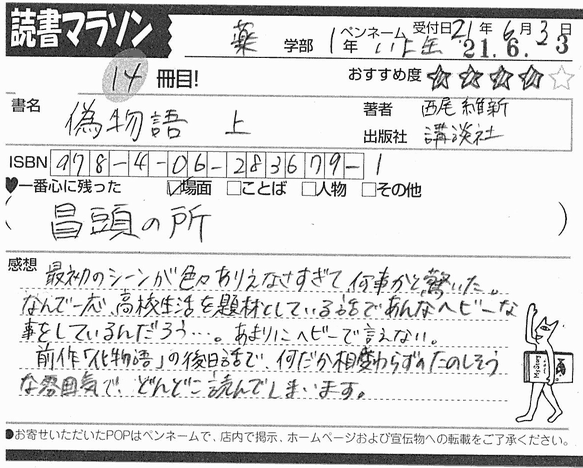 読書マラソン
薬 学部 1年 ペンネーム いよ 受付日 21年6月3日
21.6.-3
14 冊目! おすすめ度 ★★★★☆
書名 偽物語 上 著者 西尾維新
出版社 講談社
ISBN 978-4-06-283679-1
♥一番心に残った ☑場面 □ことば □人物 □その他
(冒頭の所)
感想 最初のシーンが色々ありえなさすぎて、何事かと驚いた。
なんで一応、高校生活を題材としている話であんなヘビーな
事をしているんだろう…。あまりにヘビーで言えない。
前作「化物語」の後日話で、何だか相変わらずのたのしそう
な雰囲気で、どんどこ読んでしまいます。
●お寄せいただいたPOPはペンネームで、店内で掲示、ホームページおよび宣伝物への転載をご了承ください。